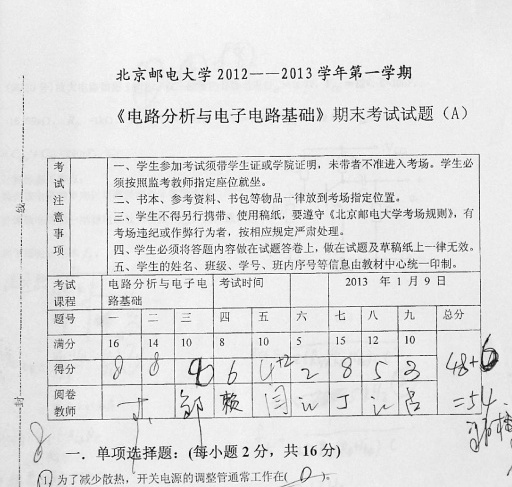 北京邮电大学 2012——2013 学年第一学期
《电路分析与电子电路基础》期末考试试题（A）
考试注意事项
一、学生参加考试须带学生证或学院证明，未带者不准进入考场。学生必
须按照监考教师指定座位就坐。
二、书本、参考资料、书包等物品一律放到考场指定位置。
三、学生不得另行携带、使用稿纸，要遵守《北京邮电大学考场规则》，有
考场违纪或作弊行为者，按相应规定严肃处理。
四、学生必须将答题内容做在试题答卷上，做在试题及草稿纸上一律无效。
五、学生的姓名、班级、学号、班内序号等信息由教材中心统一印制。
考试课程 电路分析与电子电路基础 考试时间 2013 年 1 月 9 日
题号 一 二 三 四 五 六 七 八 九 总分
满分 16 14 10 8 10 5 15 12 10
得分 8 8 6 4+2 2 8 5 3 48+6
阅卷教师 邹 赖 闫 丁 =54
线
封
8
一．单项选择题：(每小题 2 分，共 16 分)
1 为了减少散热，开关电源的调整管通常工作在( D )。